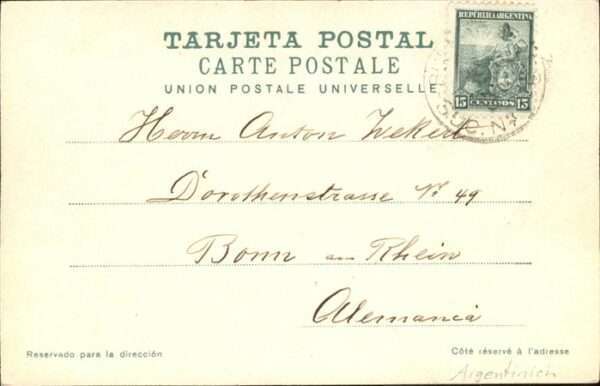 TARJETA POSTAL
CARTE POSTALE
UNION POSTALE UNIVERSELLE
REPÚBLICA ARGENTINA
15 CENTAVOS 15
SUC. Nº
Herrn Anton Wekerl
Dorothenstrasse Nº 49
Bonn am Rhein
Alemania
Reservado para la dirección
Côté réservé à l'adresse